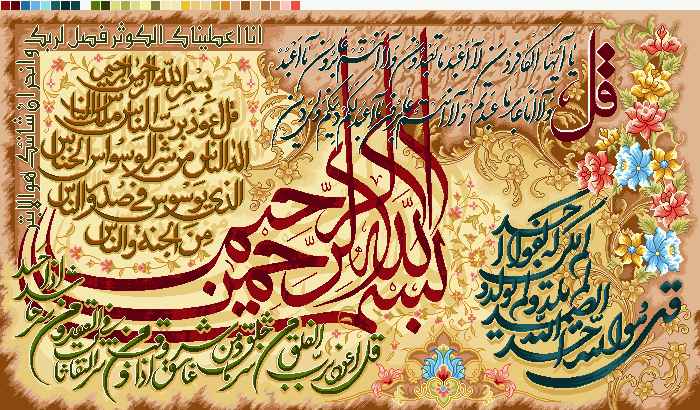 انا اعطیناک الکوثر فصل لربک
وانحر ان شانئک هو الابتر
بسم الله الرحمن الرحیم
قل اعوذ برب الناس ملک الناس
اله الناس من شر الوسواس الخناس
الذی یوسوس فی صدور الناس
من الجنة والناس
قل یا ایها الکافرون لا اعبد ما تعبدون ولا انتم عابدون ما اعبد
ولا انا عابد ما عبدتم ولا انتم عابدون ما اعبد لکم دینکم ولی دین
بسم الله الرحمن الرحیم
قل هو الله احد
الله الصمد لم یلد ولم یولد
ولم یکن له کفوا احد
قل اعوذ برب الفلق من شر ما خلق ومن شر غاسق اذا وقب
ومن شر النفاثات فی العقد ومن شر حاسد اذا حسد